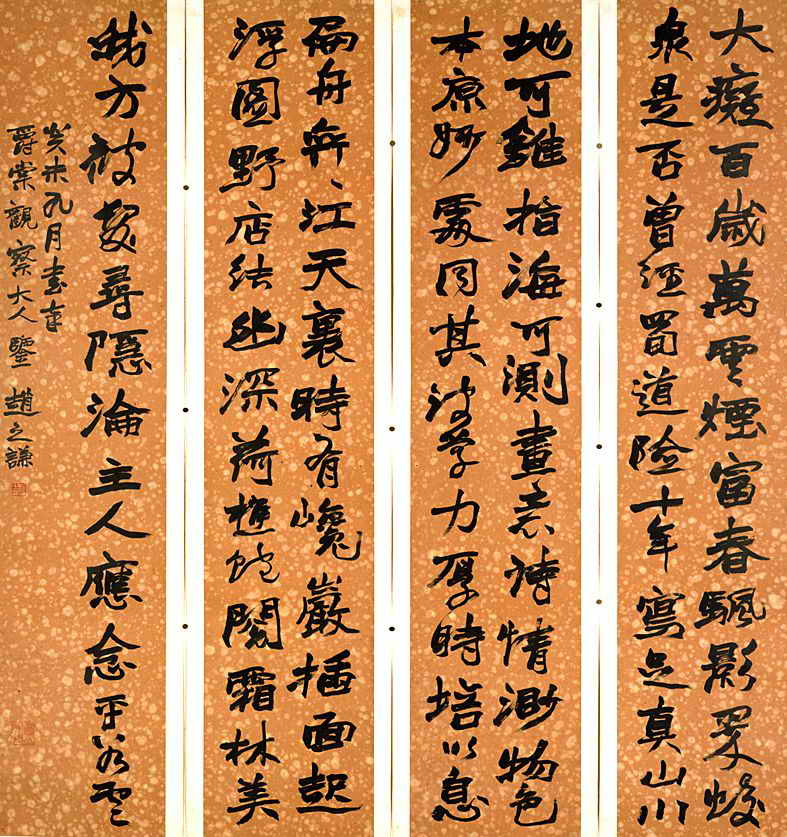 大癡百歲萬雲煙富春颿影蛟
泉是否曾經蜀道險十年寫足真山川
地可錐指海可測畫意詩情渺物色
本原妙處同其波學力厚時培以息
扁舟奔江天裏時有巉巖插面起
浮圖野店結幽深荷樵蛇閣霜林美
我方被髮尋隱淪主人應念平雲
癸未九月書奉
爵棠觀察大人鑒 趙之謙